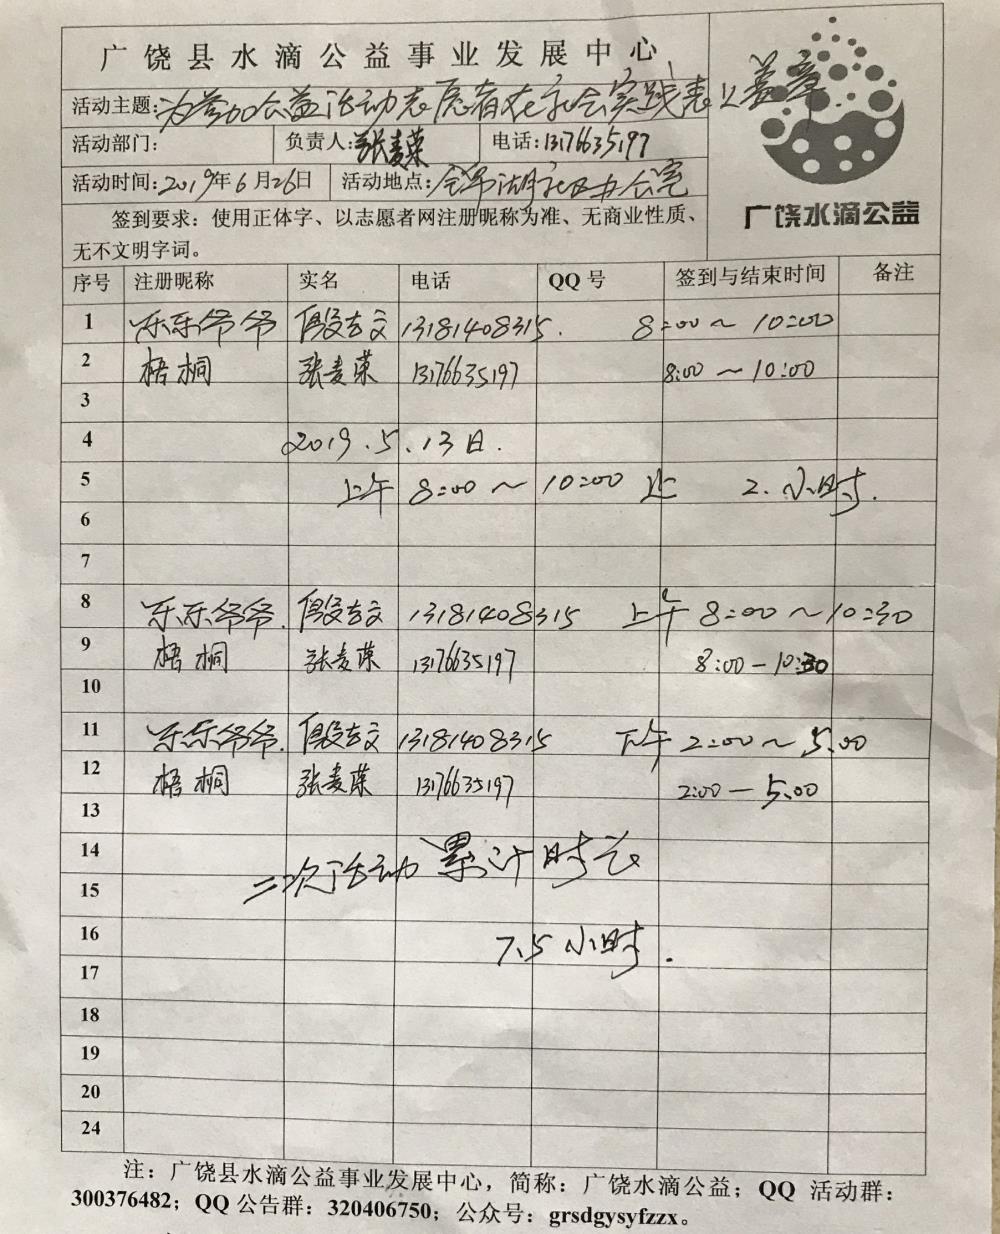 广饶县水滴公益事业发展中心
活动主题:为参加公益活动志愿者在社会实践表上盖章
活动部门: 负责人:张麦荣 电话:13176635197
活动时间:2019年6月26日 活动地点: 湖社区办公室
签到要求：使用正体字、以志愿者网注册昵称为准、无商业性质、
无不文明字词。
广饶水滴公益
序号 注册昵称 实名 电话 QQ 号 签到与结束时间 备注
1 乐乐爷爷 段吉文 13181408315. 8:00～10:00
2 梧桐 张麦荣 13176635197 8:00～10:00
3
4 2019.5.13日.
5 上午 8:00～10:00 止 2.小时.
6
7
8 乐乐爷爷. 段吉文 13181408315 上午 8:00～10:30
9 梧桐 张麦荣 13176635197 8:00-10:30
10
11 乐乐爷爷. 段吉文 13181408315 下午 2:00～5.00
12 梧桐 张麦荣 13176635197 2:00-5.00
13
14 二次活动累计时长
15
16 7.5小时.
17
18
19
20
24
注：广饶县水滴公益事业发展中心，简称：广饶水滴公益；QQ 活动群：
300376482；QQ 公告群：320406750；公众号：grsdgysyfzzx。